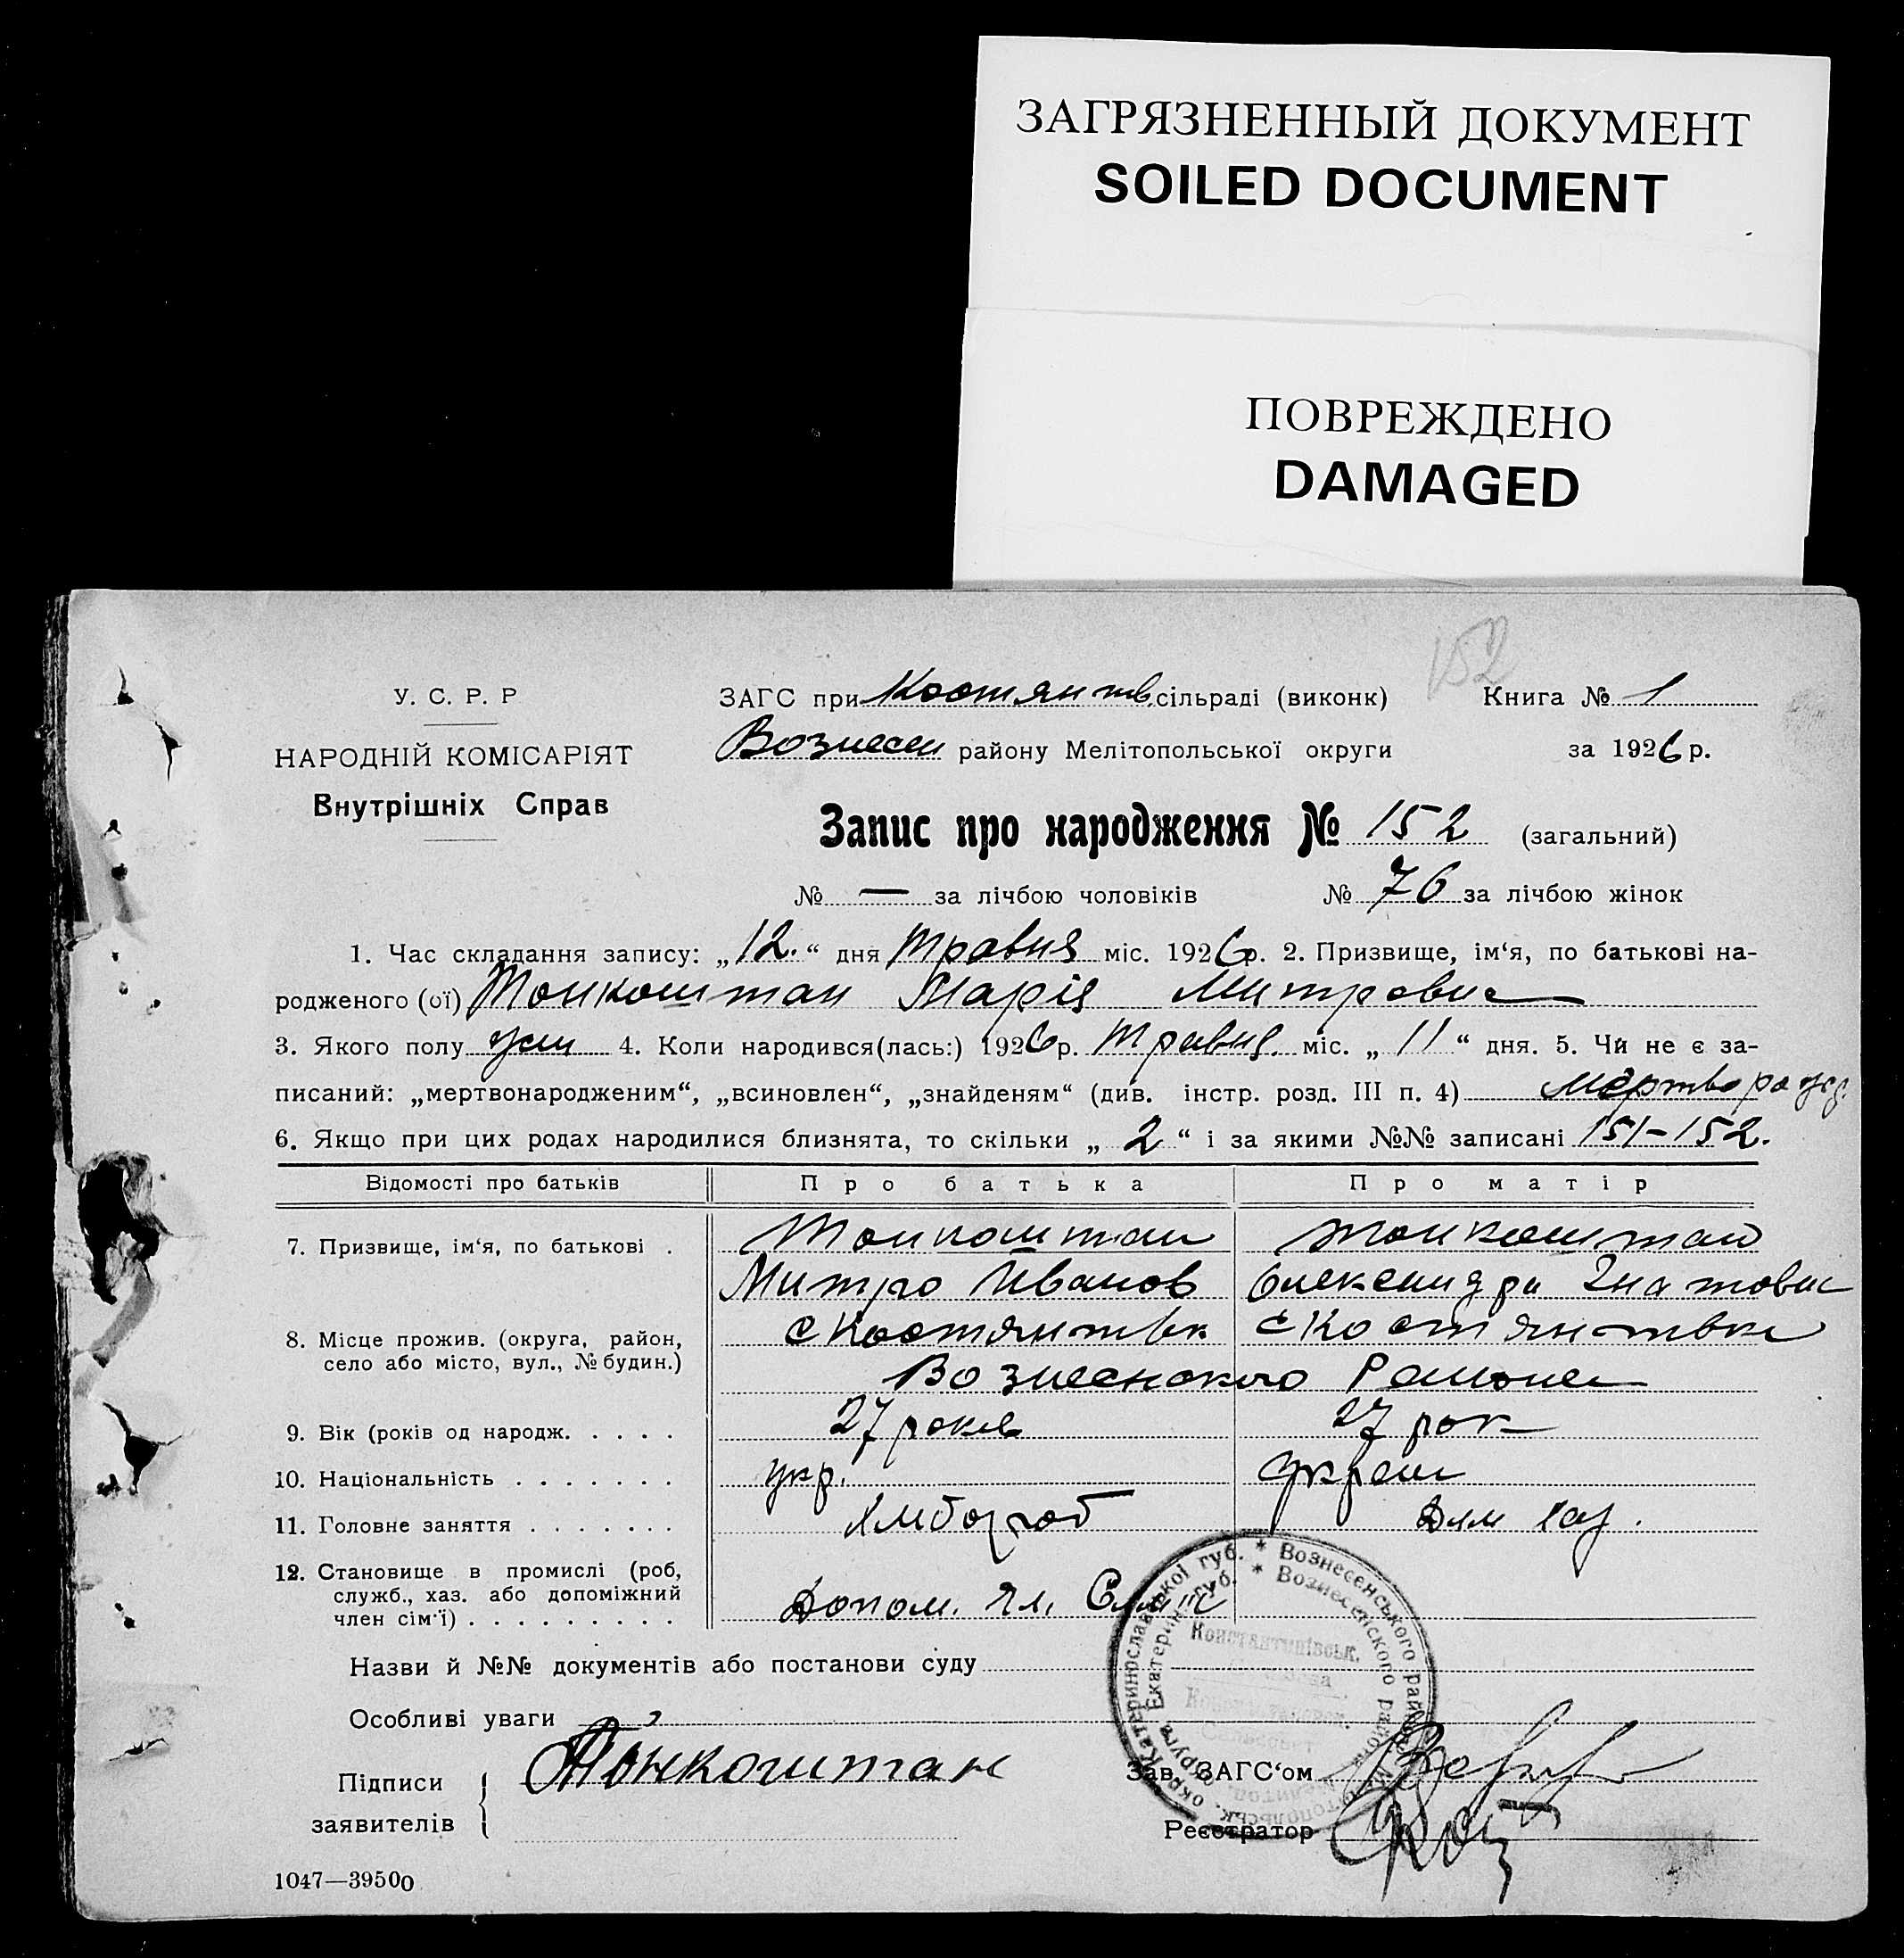 ЗАГРЯЗНЕННЫЙ ДОКУМЕНТ
SOILED DOCUMENT
ПОВРЕЖДЕНО
DAMAGED
152
У. С. Р. Р
ЗАГС при Костянтв. сільраді (виконк) Книга № 1
НАРОДНІЙ КОМІСАРІЯТ
Вознесен району Мелітопольської округи за 1926 р.
Внутрішніх Справ
Запис про народження № 152 (загальний)
№ — за лічбою чоловіків № 76 за лічбою жінок
1. Час складання запису: „12.“ дня травня міс. 1926 р. 2. Призвище, ім‘я, по батькові на-
родженого (ої) Тонкоштан Марія Митровна
3. Якого полу жін 4. Коли народився(лась:) 1926 р. травня. міс. „11“ дня. 5. Чи не є за-
писаний: „мертвонародженим“, „всиновлен“, „знайденям“ (див. інстр. розд. III п. 4) мертворожд.
6. Якщо при цих родах народилися близнята, то скільки „2“ і за якими №№ записані 151-152.
Відомості про батьків Про батька Про матір
7. Призвище, ім‘я, по батькові . Тонкоштан Тонкоштан
Митро Иванов Олександра Гнатовн
8. Місце прожив. (округа, район, село або місто, вул., № будин.) с Костянтвк с Костянтвка
Вознесенского Района
9. Вік (років од народж. . . . . 27 років 27 рок
10. Національність . . . . . . . укр. Украін
11. Головне заняття . . . . . . . Хлібороб Дом хаз.
12. Становище в промислі (роб, служб., хаз. або допоміжний член сім‘ї) . . . . . . . . . Допом. чл. Сімї
Назви й №№ документів або постанови суду
Особливі уваги —
Підписи заявителів Тонкоштан
Зав. ЗАГС‘ом
Реєстратор
Катеринославської губ. * Вознесенського району
Екатерин. губ. * Вознесенского района
Константинівськ.
1047—39500